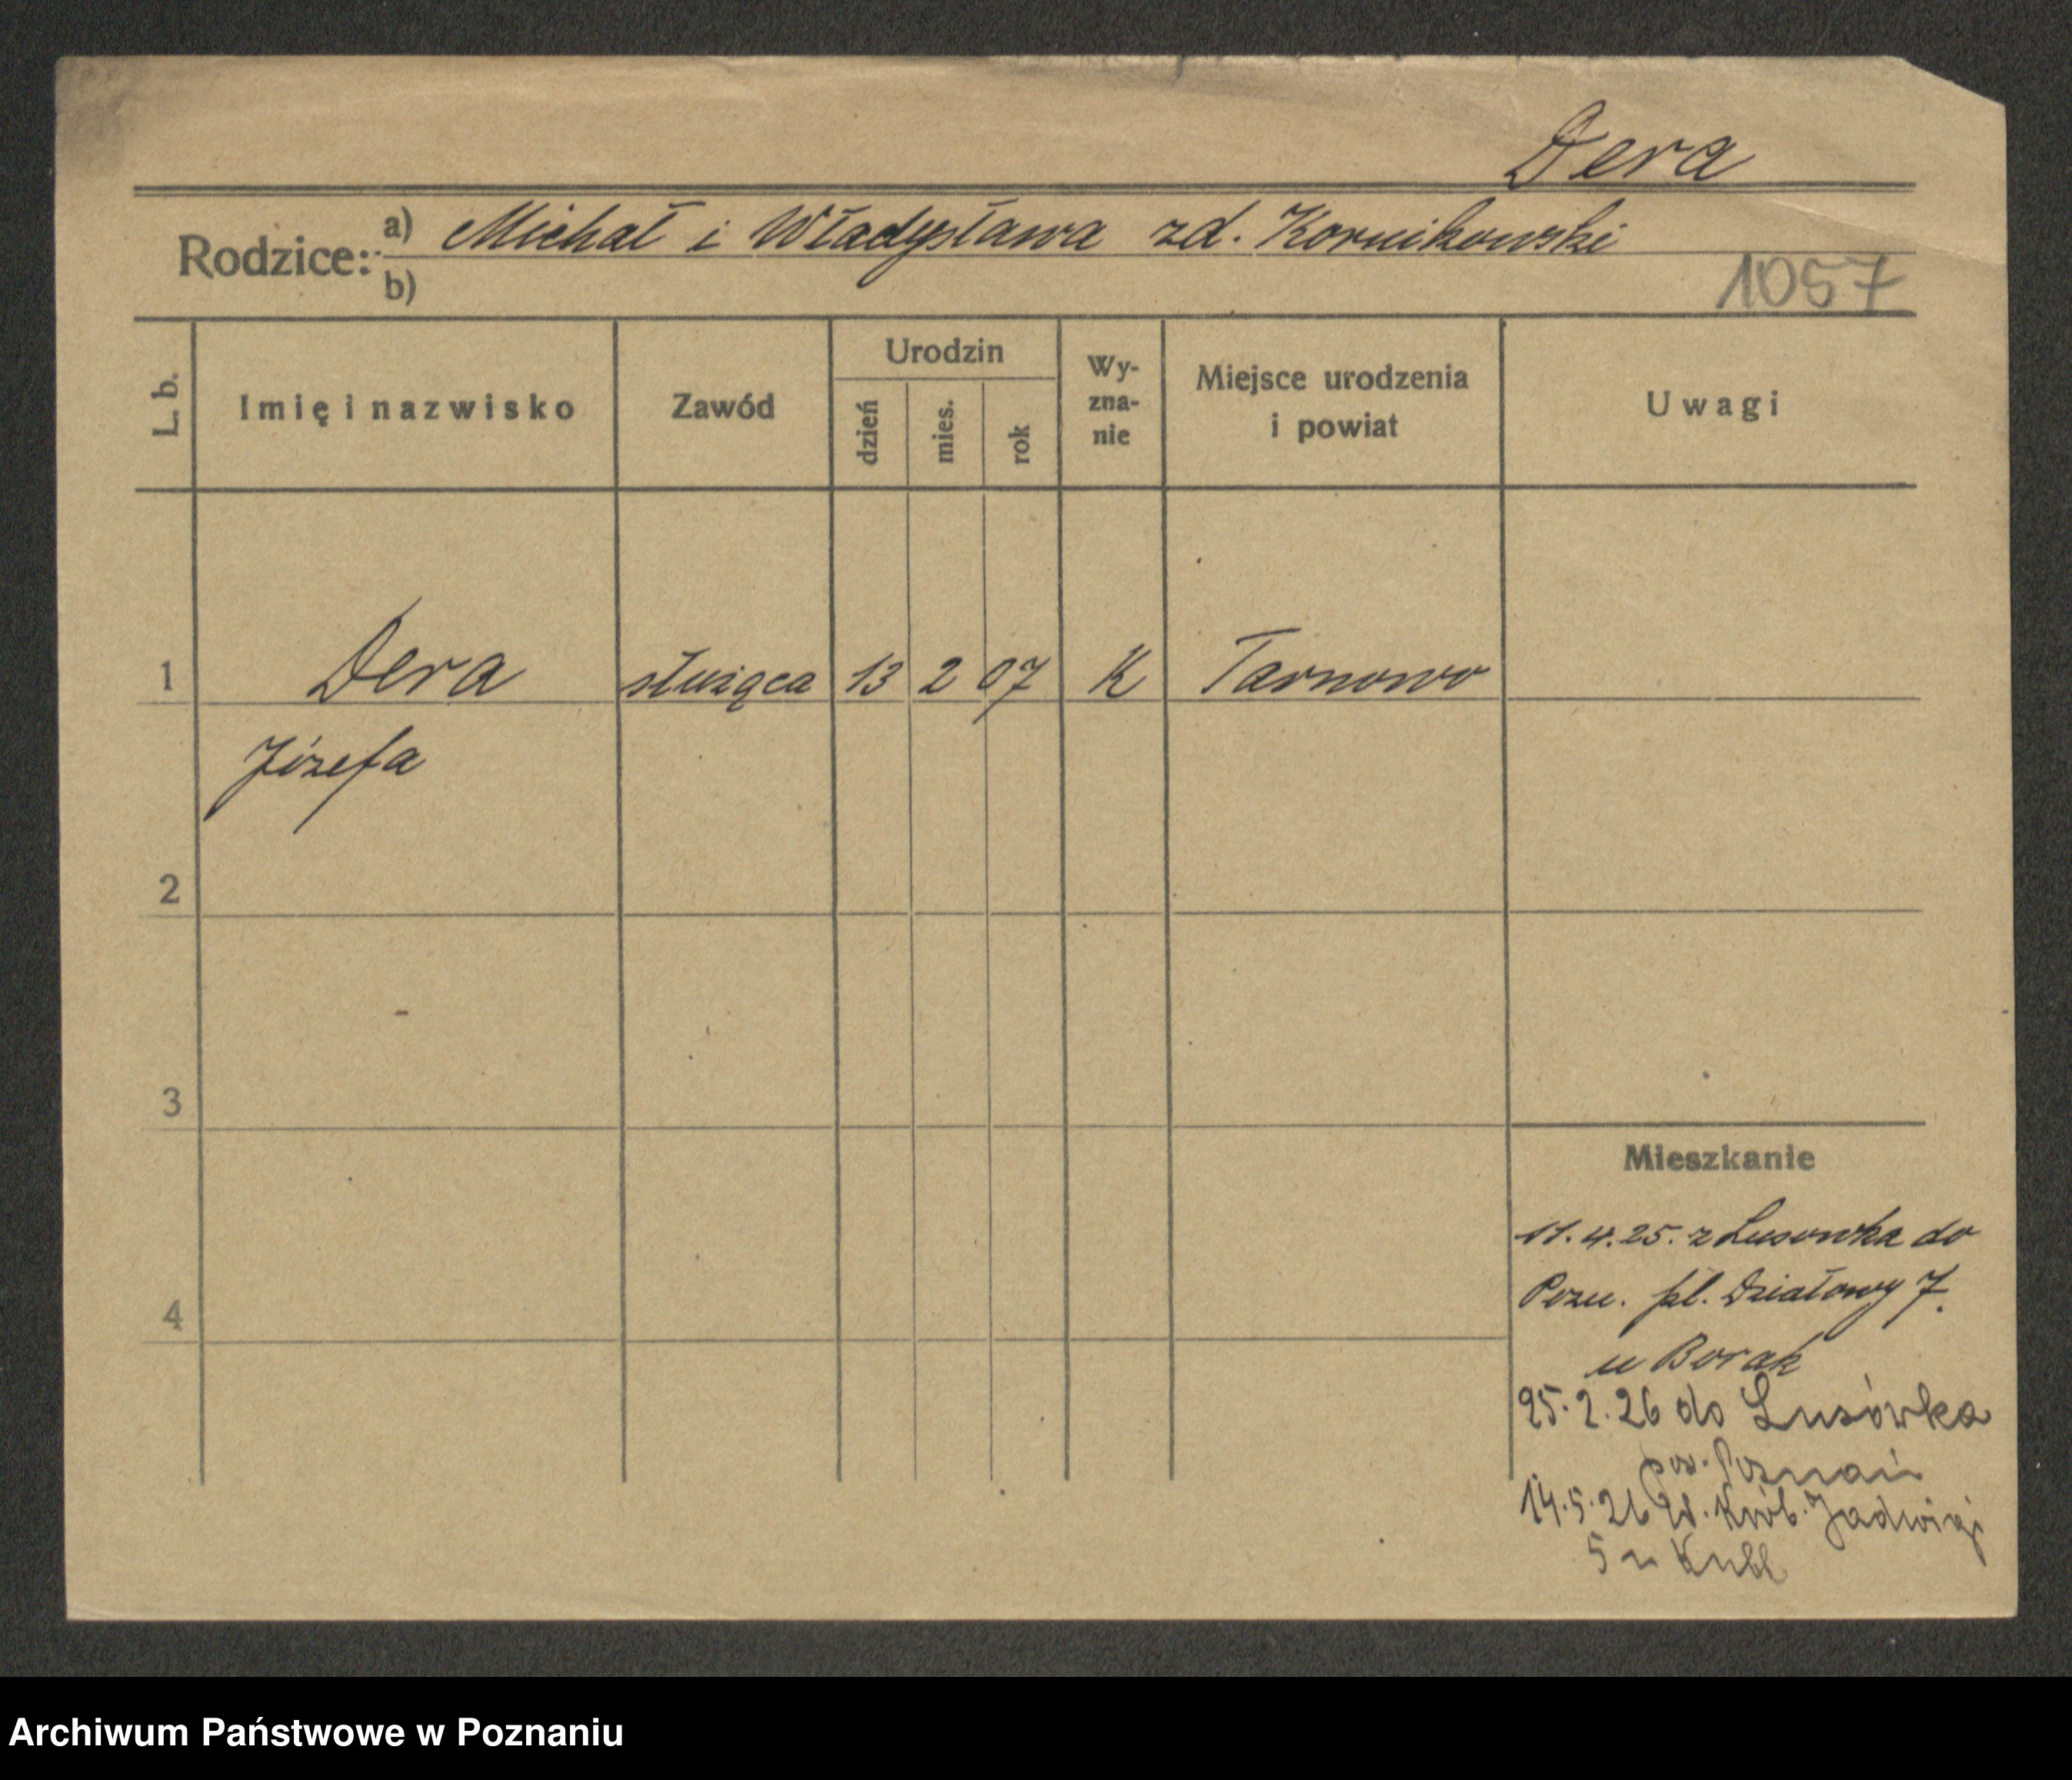 Dera
Rodzice: a) Michał i Władysława zd. Kornikowski
b)
1057
L. b.
Imię i nazwisko
Zawód
Urodzin
dzień
mies.
rok
Wy-
zna-
nie
Miejsce urodzenia
i powiat
Uwagi
1 Dera służąca 13 2 07 K Tarnowo
Józefa
2
3
4
Mieszkanie
11.4.25. z Lusowka do
Pozn. pl. Działowy 7.
u Borak
25.2.26 do Lusówka
pow. Poznań
14.5.26 Król. Jadwigi
5 u
Archiwum Państwowe w Poznaniu